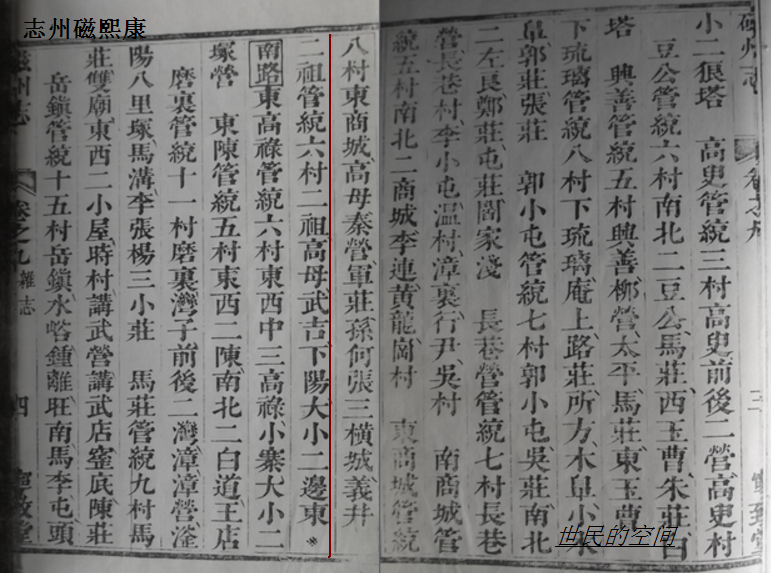 康熙磁州志
磁州志 卷之九 三
小二狼塔 高史管統三村高史前後二營高史村
豆公管統六村南北二豆公馬莊西玉曹朱莊白
塔 興善管統五村興善柳營太平馬莊東玉曹
下琉璃管統八村下琉璃庵上路莊所方木皐小木
皐郭莊張莊 郭小屯管統七村郭小屯吳莊南北
二左良鄭莊屯莊閻家淺 長巷營管統七村長巷
營長巷村李小屯温村漳裏行尹吳村 南商城管
統五村南北二商城李連黄龍崗村 東商城管統
八村東商城高母秦營軍莊孫何張三橫城義井
二祖管統六村二祖高母武吉下陽大小二邊東
南路東高祿管統六村東西中三高祿小寨大小二
塚營 東陳管統五村東西二陳南北二白道王店
磨裏管統十一村磨裏灣子前後二灣漳漳營淦
陽八里塚馬溝李張楊三小莊 馬莊管統九村馬
莊雙廟東西二小屋時村講武營講武店窪底陳莊
岳鎮管統十五村岳鎮水峪鍾離旺南馬李屯頭
州志 卷之九 雜志 四
世民的空间